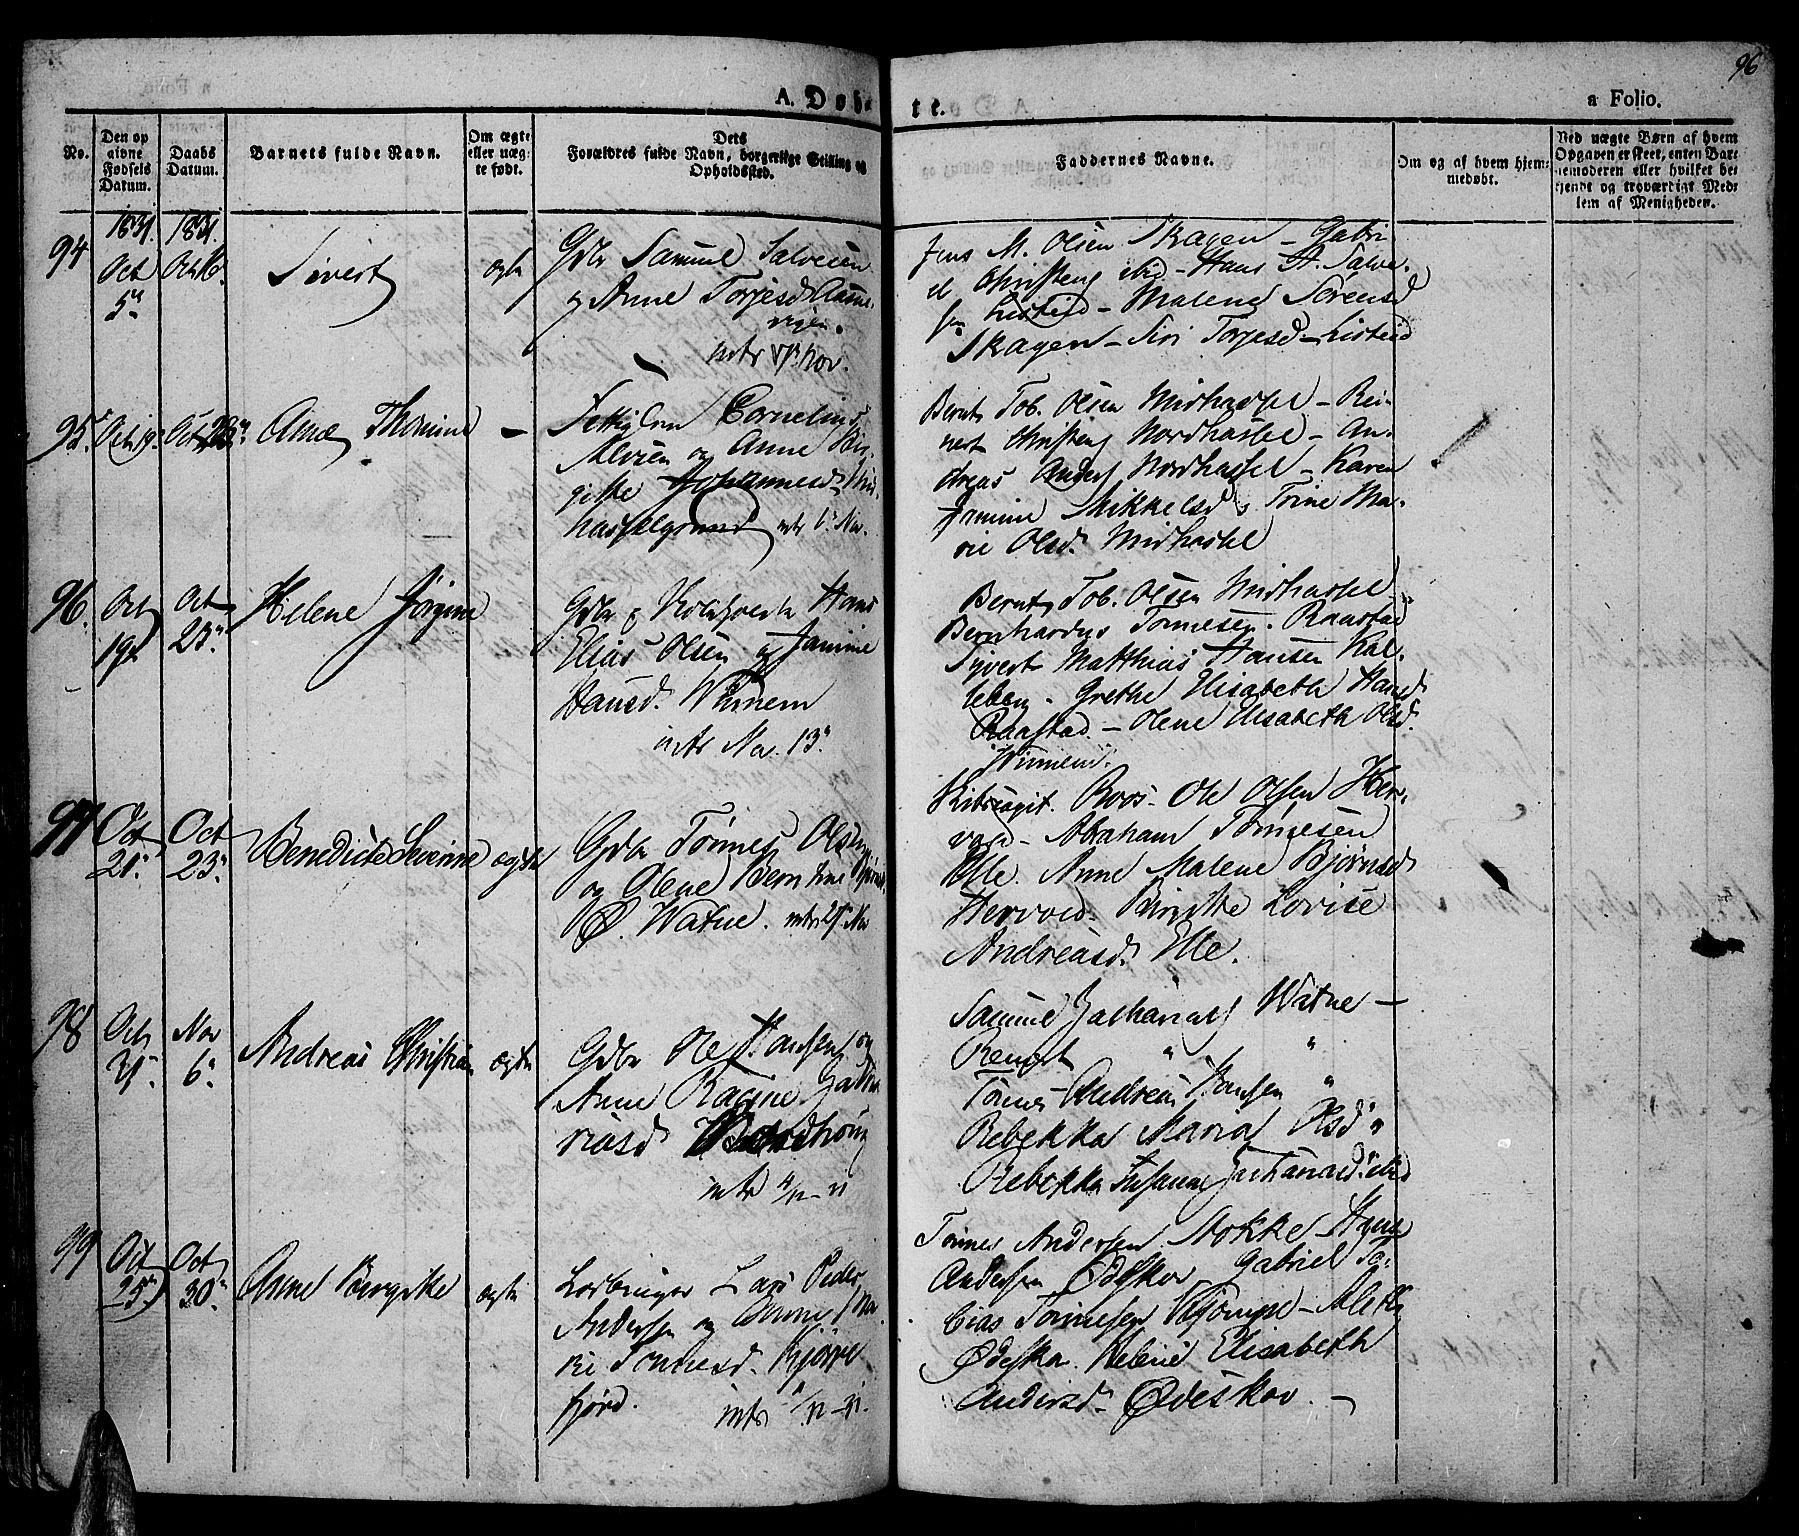 96
A. Døbte.
a Folio.
No.
Den opgivne Fødsels Datum.
Daabs Datum.
Barnets fulde Navn.
Om ægte eller uægte født.
Dets Forældres fulde Navn, borgerlige Stilling og Opholdssted.
Faddernes Navne.
Om og af hvem hjemmedøbt.
Ved uægte Børn af hvem Opgaven er skeet, enten Barnemoderen eller hvilket bekjendt og troværdigt Medlem af Menigheden.
1831. 1831
94 Oct 5te Oct 16. Sivert ægte
Gdbr Samuel Salvesen
og Anne Torjesd Aasne-
vigen.
intr Nov.
Jens M. Olsen Skagen - Gabri-
el Christens ibid - Hans A. Salve-
sen Listeid - Malene Sørensd
Skagen - Siri Torjesd - Listeid
95. Oct 19. Oct 23. Anne Thomine -
Cornelius
Alvsen og Anne Bir-
gitte Johannesd Mid-
hasselgrund intr 6 Nov.
Bernt Tob. Olsen Midhassel - Rei-
nert Christens Nordhassel - An-
dreas Anders Nordhassel - Karen
Jamine Mikkelsd Trine Ma-
rie Olsd. Midhassel
96. Oct 19 Oct 23 Helene Jørgine
Gdbr Hans
Elias Olsen og Jamine
Hansd. Wimem
intr Nov. 13
Bernt Tob. Olsen Midhassel
Bernhardus Tønnesen. Raastad
Syvert Matthias Hansen Kal-
leberg. Grethe Elisabeth Hansd
Raastad - Olene Elisabeth Olsd.
97 Oct 21. Oct 23. Benedicte Severine ægte
Gdbr Tønnes Olsen
og Olene Berntine
Ø. Watne. intr Nov
Roos - Ole Olsen Her-
vold - Abraham Tønnesen
Elle. Anne Malene Bjørnsd
Hervold. Birgitte Lovise
Andreasd. Elle.
98 Oct 21. Nov 6. Andreas Christian ægte
Gdbr Ole Hansen og
Anne Racine Zacha-
riasd
intr
Samuel Zachariass Watne -
Bengt " "
Tønnes Andreas Hansen "
Rebekka Maria Olsd "
Rebekka Susanne Zachariasd ibid
99 Oct 25 Oct 30. Anne Birgitte ægte
Lars Peder
Andersen og Anne Ma-
rie Tønnesd. Kjørre-
fjord.
intr
Tønnes Andersen Stokke - Hans
Andersen Ødeskov Gabriel To-
bias Tønnesen - Aleth
Ødeskov. Helene Elisabeth
Andersd - Ødeskov. -